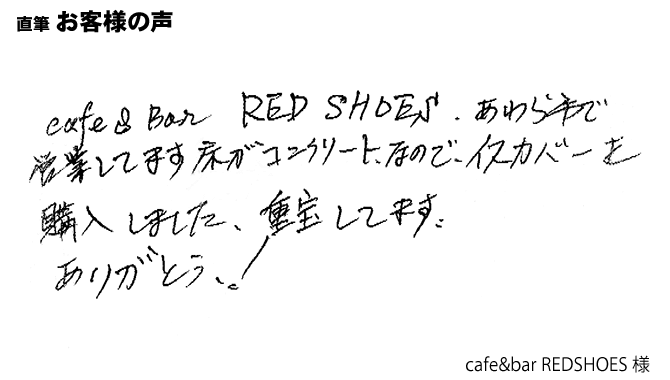 直筆 お客様の声
cafe & Bar RED SHOES. あわら市で
営業してます床がコンクリート、なので、イスカバーを
購入しました、重宝してます。
ありがとう、!
cafe&bar REDSHOES 様